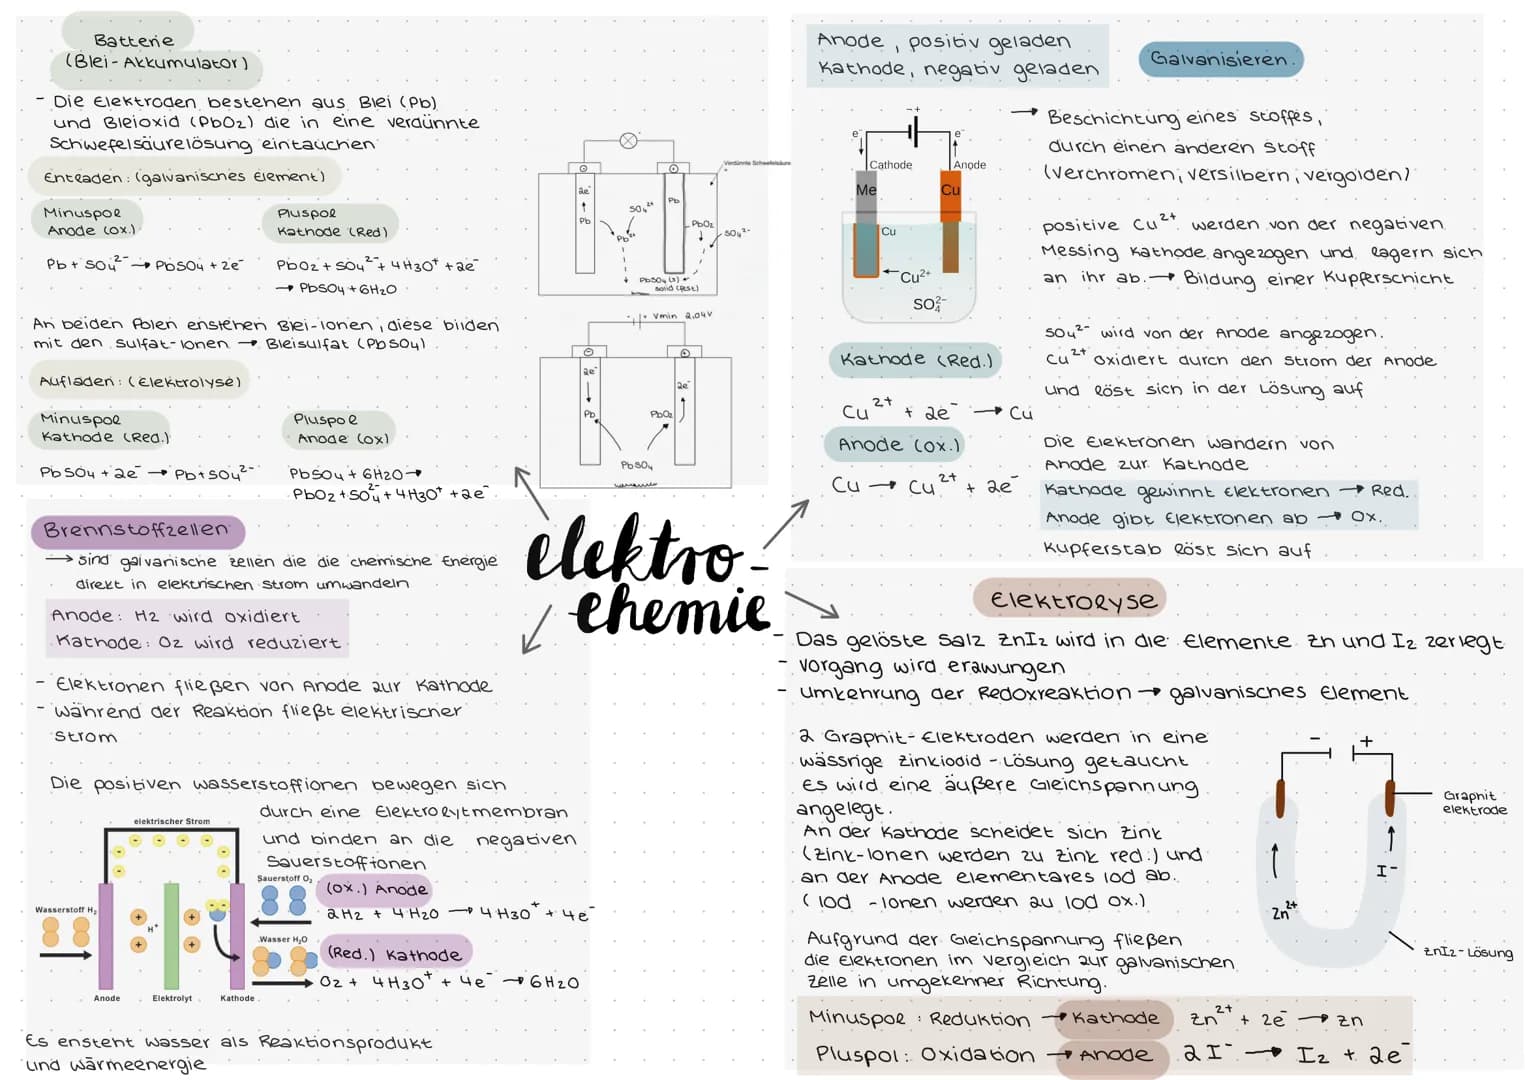 Batterie
(Blei-Akkumulator)
- Die Elektroden bestehen aus Blei (Pb)
und Bleioxid (PbO2) die in eine verdünnte
Schwefelsäurelösung eintauchen
Entladen: (galvanisches Element)
Minuspol
Anode (ox.)
Pluspol
Kathode (Red)
Pb + SO4²⁻ → PbSO4 + 2e⁻
PbO2 + SO4²⁻ + 4H3O⁺ + 2e⁻
→ PbSO4 + 6H2O
An beiden Polen enstehen Blei-Ionen, diese bilden
mit den Sulfat-Ionen → Bleisulfat (PbSO4)
Aufladen: (Elektrolyse)
Minuspol
Kathode (Red.)
Pluspol
Anode (ox)
PbSO4 + 2e⁻ → Pb + SO4²⁻
PbSO4 + 6H2O →
PbO2 + SO4²⁻ + 4H3O⁺ + 2e⁻
Verdünnte Schwefelsäure
2e⁻
Pb
SO4²⁺
Pb²⁺
Pb
PbO2
SO4²⁻
PbSO4 (s)
solid (fest)
Vmin 2,04V
2e⁻
Pb
2e⁻
PbO2
PbSO4
Anode, positiv geladen
Kathode, negativ geladen
Galvanisieren
- +
e⁻
e⁻
Cathode
Anode
Me
Cu
Cu
Cu²⁺
SO4²⁻
→ Beschichtung eines Stoffes,
durch einen anderen Stoff
(verchromen, versilbern, vergolden)
positive Cu²⁺ werden von der negativen
Messing Kathode angezogen und lagern sich
an ihr ab. → Bildung einer Kupferschicht
SO4²⁻ wird von der Anode angezogen.
Cu²⁺ oxidiert durch den Strom der Anode
und löst sich in der Lösung auf
Kathode (Red.)
Cu²⁺ + 2e⁻ → Cu
Anode (ox.)
Cu → Cu²⁺ + 2e⁻
Die Elektronen wandern von
Anode zur Kathode
Kathode gewinnt Elektronen → Red.
Anode gibt Elektronen ab → Ox.
Kupferstab löst sich auf
elektro-
chemie
Brennstoffzellen
→ sind galvanische Zellen die die chemische Energie
direkt in elektrischen Strom umwandeln
Anode: H2 wird oxidiert
Kathode: O2 wird reduziert
- Elektronen fließen von Anode zur Kathode
- Während der Reaktion fließt elektrischer
Strom
Die positiven Wasserstoffionen bewegen sich
durch eine Elektrolytmembran
und binden an die negativen
Sauerstoffionen
elektrischer Strom
Wasserstoff H2
H⁺
Sauerstoff O2
Wasser H2O
Anode
Elektrolyt
Kathode
(ox.) Anode
2H2 + 4H2O → 4H3O⁺ + 4e⁻
(Red.) Kathode
O2 + 4H3O⁺ + 4e⁻ → 6H2O
Es ensteht Wasser als Reaktionsprodukt
und Wärmeenergie
Elektrolyse
- Das gelöste Salz ZnI2 wird in die Elemente Zn und I2 zerlegt
- Vorgang wird erzwungen
- Umkehrung der Redoxreaktion → galvanisches Element
2 Graphit-Elektroden werden in eine
wässrige Zinkiodid-Lösung getaucht
Es wird eine äußere Gleichspannung
angelegt.
An der Kathode scheidet sich Zink
(Zink-Ionen werden zu Zink red.) und
an der Anode elementares Iod ab.
(Iod -Ionen werden zu Iod ox.)
- +
Graphit
elektrode
I⁻
Zn²⁺
ZnI2-Lösung
Aufgrund der Gleichspannung fließen
die Elektronen im Vergleich zur galvanischen
Zelle in umgekehrter Richtung.
Minuspol: Reduktion → Kathode Zn²⁺ + 2e⁻ → Zn
Pluspol: Oxidation → Anode 2I⁻ → I2 + 2e⁻